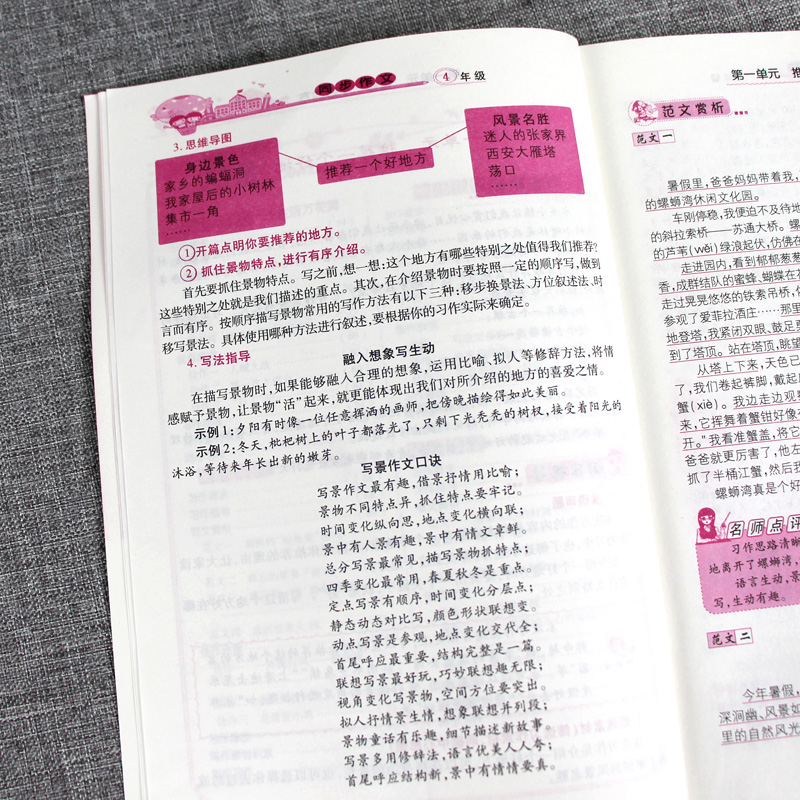 同步作文 4年级
3. 思维导图
身边景色
家乡的蝙蝠洞
我家屋后的小树林
集市一角
……
推荐一个好地方
风景名胜
迷人的张家界
西安大雁塔
荡口
……
①开篇点明你要推荐的地方。
②抓住景物特点,进行有序介绍。
首先要抓住景物特点。写之前,想一想:这个地方有哪些特别之处值得我们推荐?
这些特别之处就是我们描述的重点。其次,在介绍景物时要按照一定的顺序写,做到
言而有序。按顺序描写景物常用的写作方法有以下三种:移步换景法、方位叙述法、时
移写景法。具体使用哪种方法进行叙述,要根据你的习作实际来确定。
4. 写法指导
融入想象写生动
在描写景物时,如果能够融入合理的想象,运用比喻、拟人等修辞方法,将情
感赋予景物,让景物“活”起来,就更能体现出我们对所介绍的地方的喜爱之情。
示例1:夕阳有时像一位任意挥洒的画师,把傍晚描绘得如此美丽。
示例2:冬天,枇杷树上的叶子都落光了,只剩下光秃秃的树杈,接受着阳光的
沐浴,等待来年长出新的嫩芽。
写景作文口诀
写景作文最有趣,借景抒情用比喻;
景物不同特点异,抓住特点要牢记。
时间变化纵向思,地点变化横向联;
景中有人景有趣,景中有情文章鲜。
总分写景最常见,描写景物抓特点;
四季变化最常用,春夏秋冬是重点。
定点写景有顺序,时间变化分层点;
静态动态对比写,颜色形状联想变。
动点写景是参观,地点变化交代全;
首尾呼应最重要,结构完整是一篇。
联想写景最好玩,巧妙联想趣无限;
视角变化写景物,空间方位要突出。
拟人抒情景生情,想象联想并列段;
景物童话有乐趣,细节描述新故事。
写景多用修辞法,语言优美人人夸;
首尾呼应结构新,景中有情情要真。
第一单元 推
范文赏析
范文一
暑假里,爸爸妈妈带着我,
的螺蛳湾休闲文化园。
车刚停稳,我便迫不及待地
的斜拉索桥——苏通大桥。螺
的芦苇(wěi)绿浪起伏,仿佛在
走进园内,看到郁郁葱葱
香,成群结队的蜜蜂、蝴蝶在
走过晃晃悠悠的铁索吊桥,
参观了爱菲拉酒庄……那里
地登塔,我紧闭双眼、鼓足勇
到了塔顶。站在塔顶,眺望
从塔上下来,天色已
了,我们卷起裤脚,戴起
蟹(xiè)。我边走边观察
来,它挥舞着蟹钳好像
开。”我看准蟹盖,将它
爸爸就更厉害了,他左
抓了半桶江蟹,然后我
螺蛳湾真是个好
名师点评
习作思路清晰
地离开了螺蛳湾,
语言生动,景
写,生动有趣。
范文二
今年暑假,
深涧幽、风景如
里的自然风光